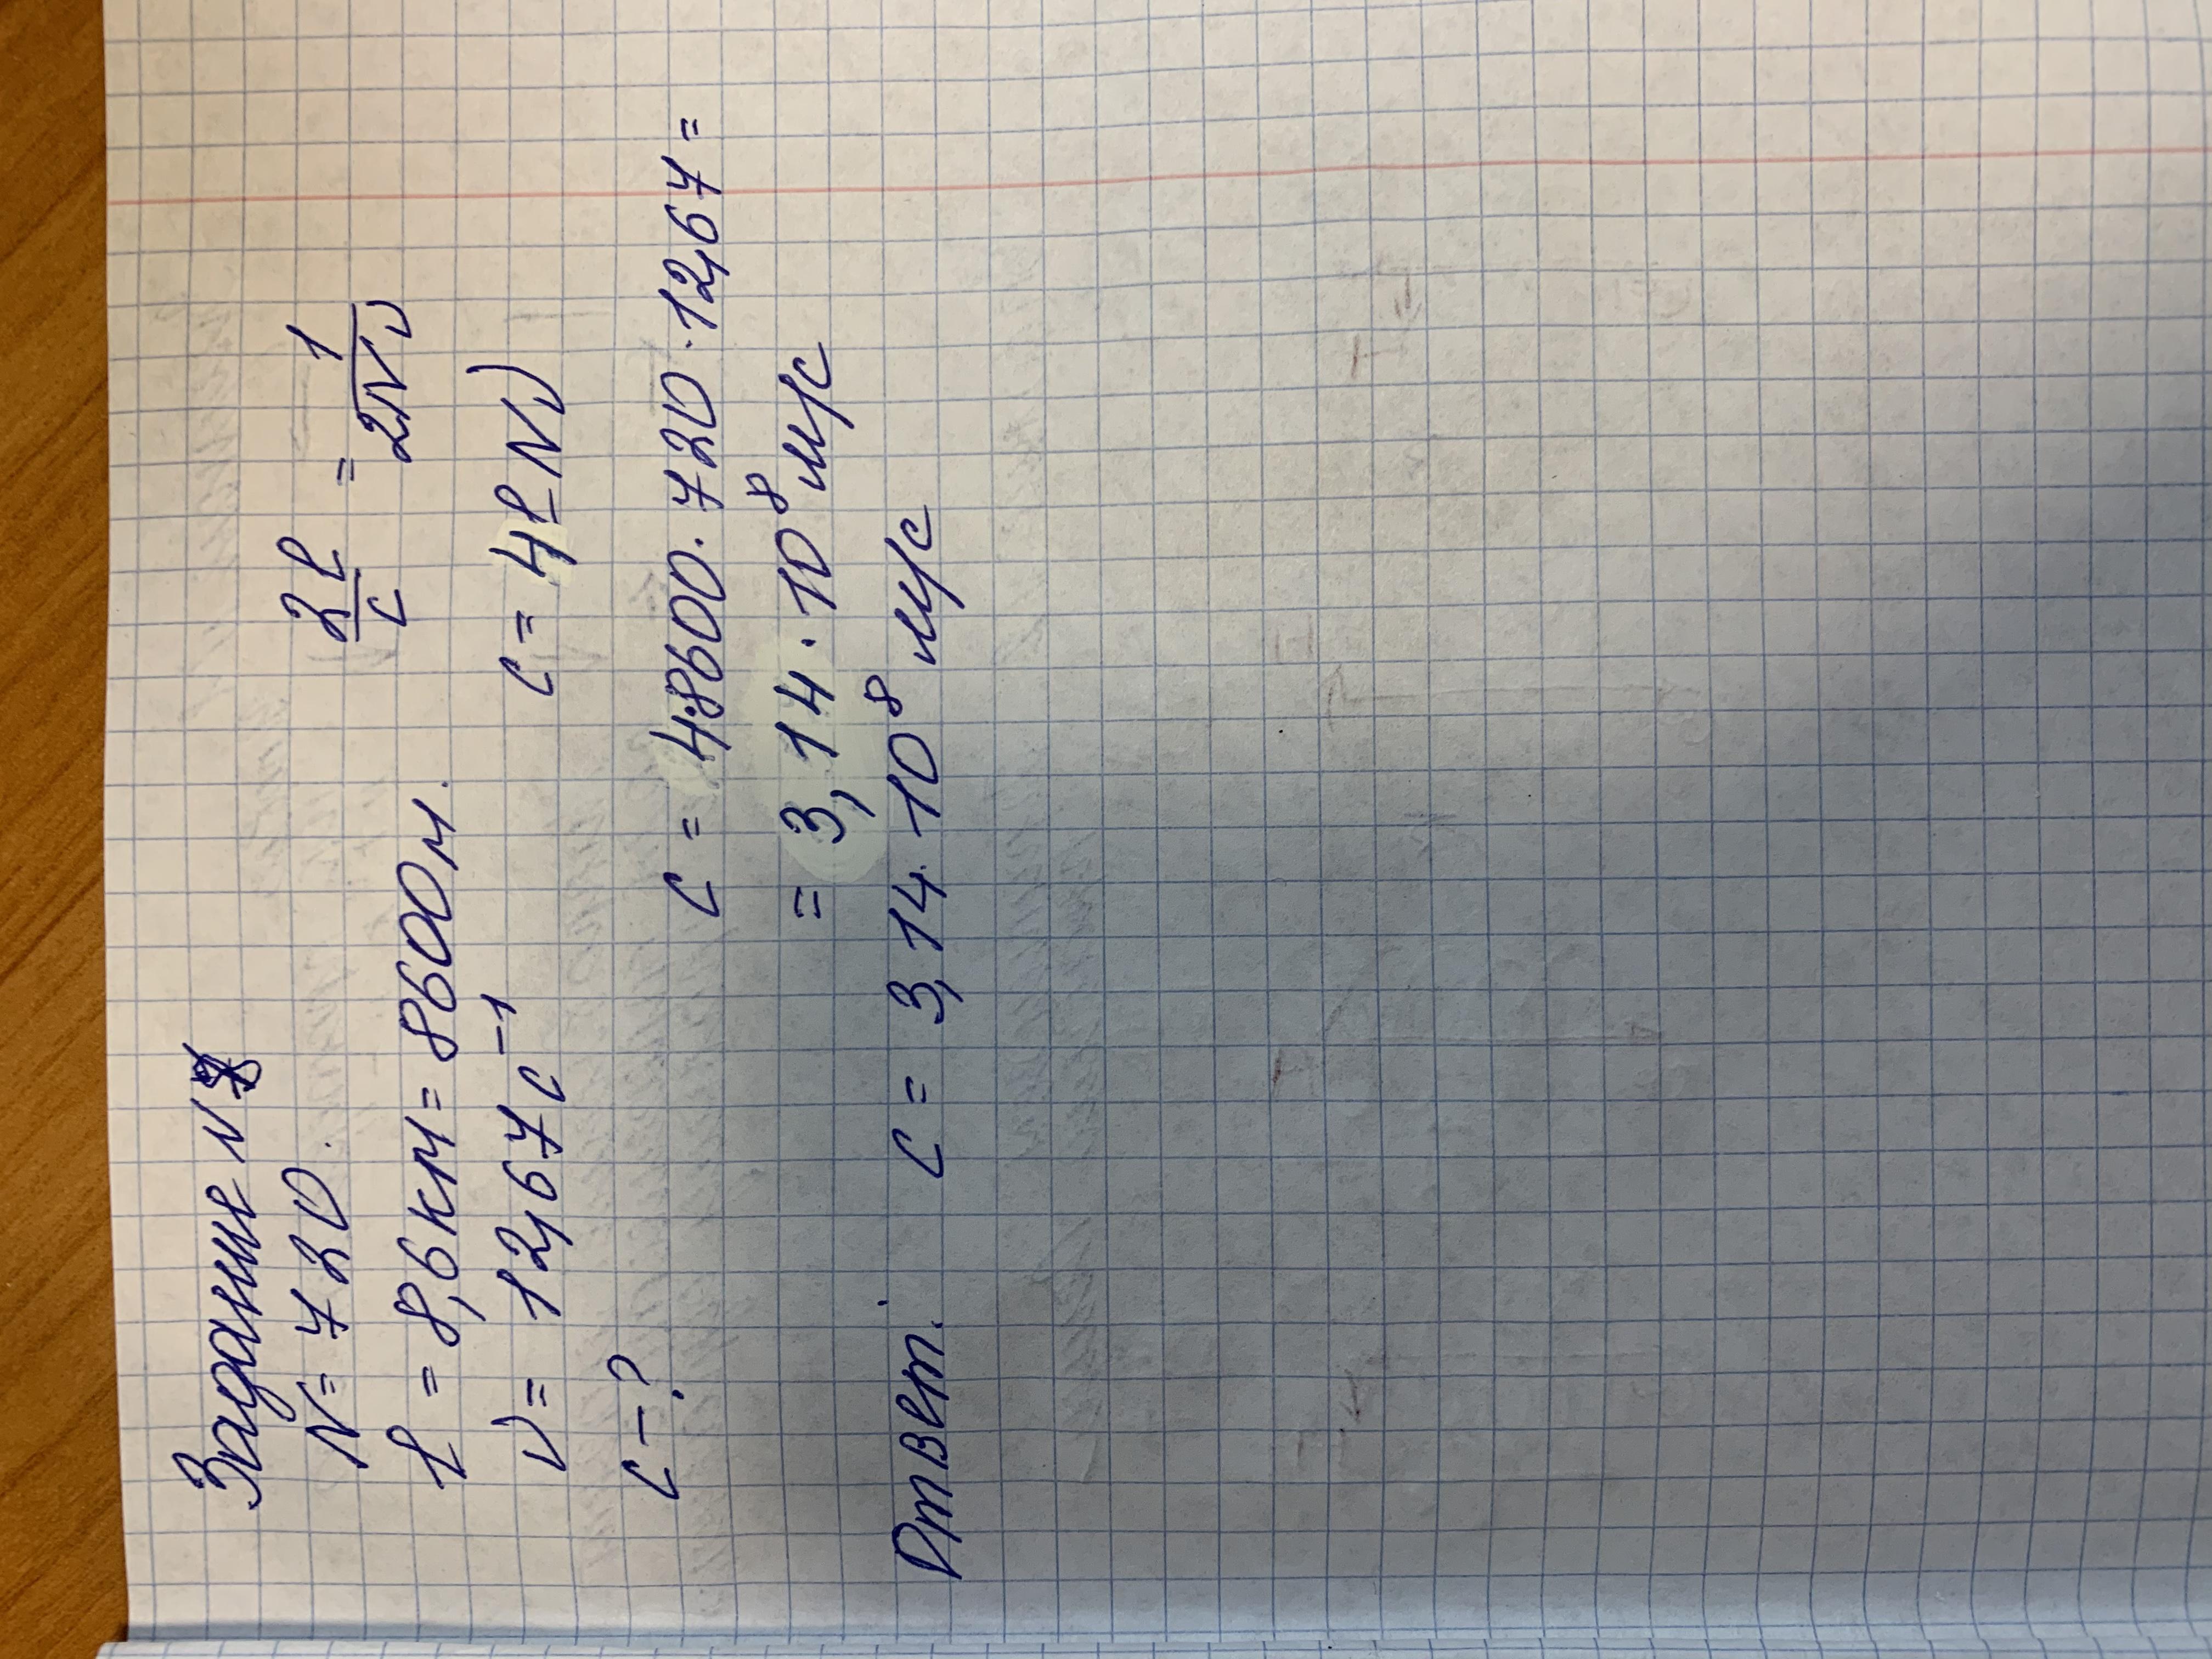 Задание №8
N = 720.
l = 8,6 км = 8600 м.
ν = 12,67 с⁻¹
с – ?
2l/c = 1/2Nν
c = 4lNν
c = 4·8600·720·12,67 =
= 3,14·10⁸ м/с
Ответ: c = 3,14·10⁸ м/с